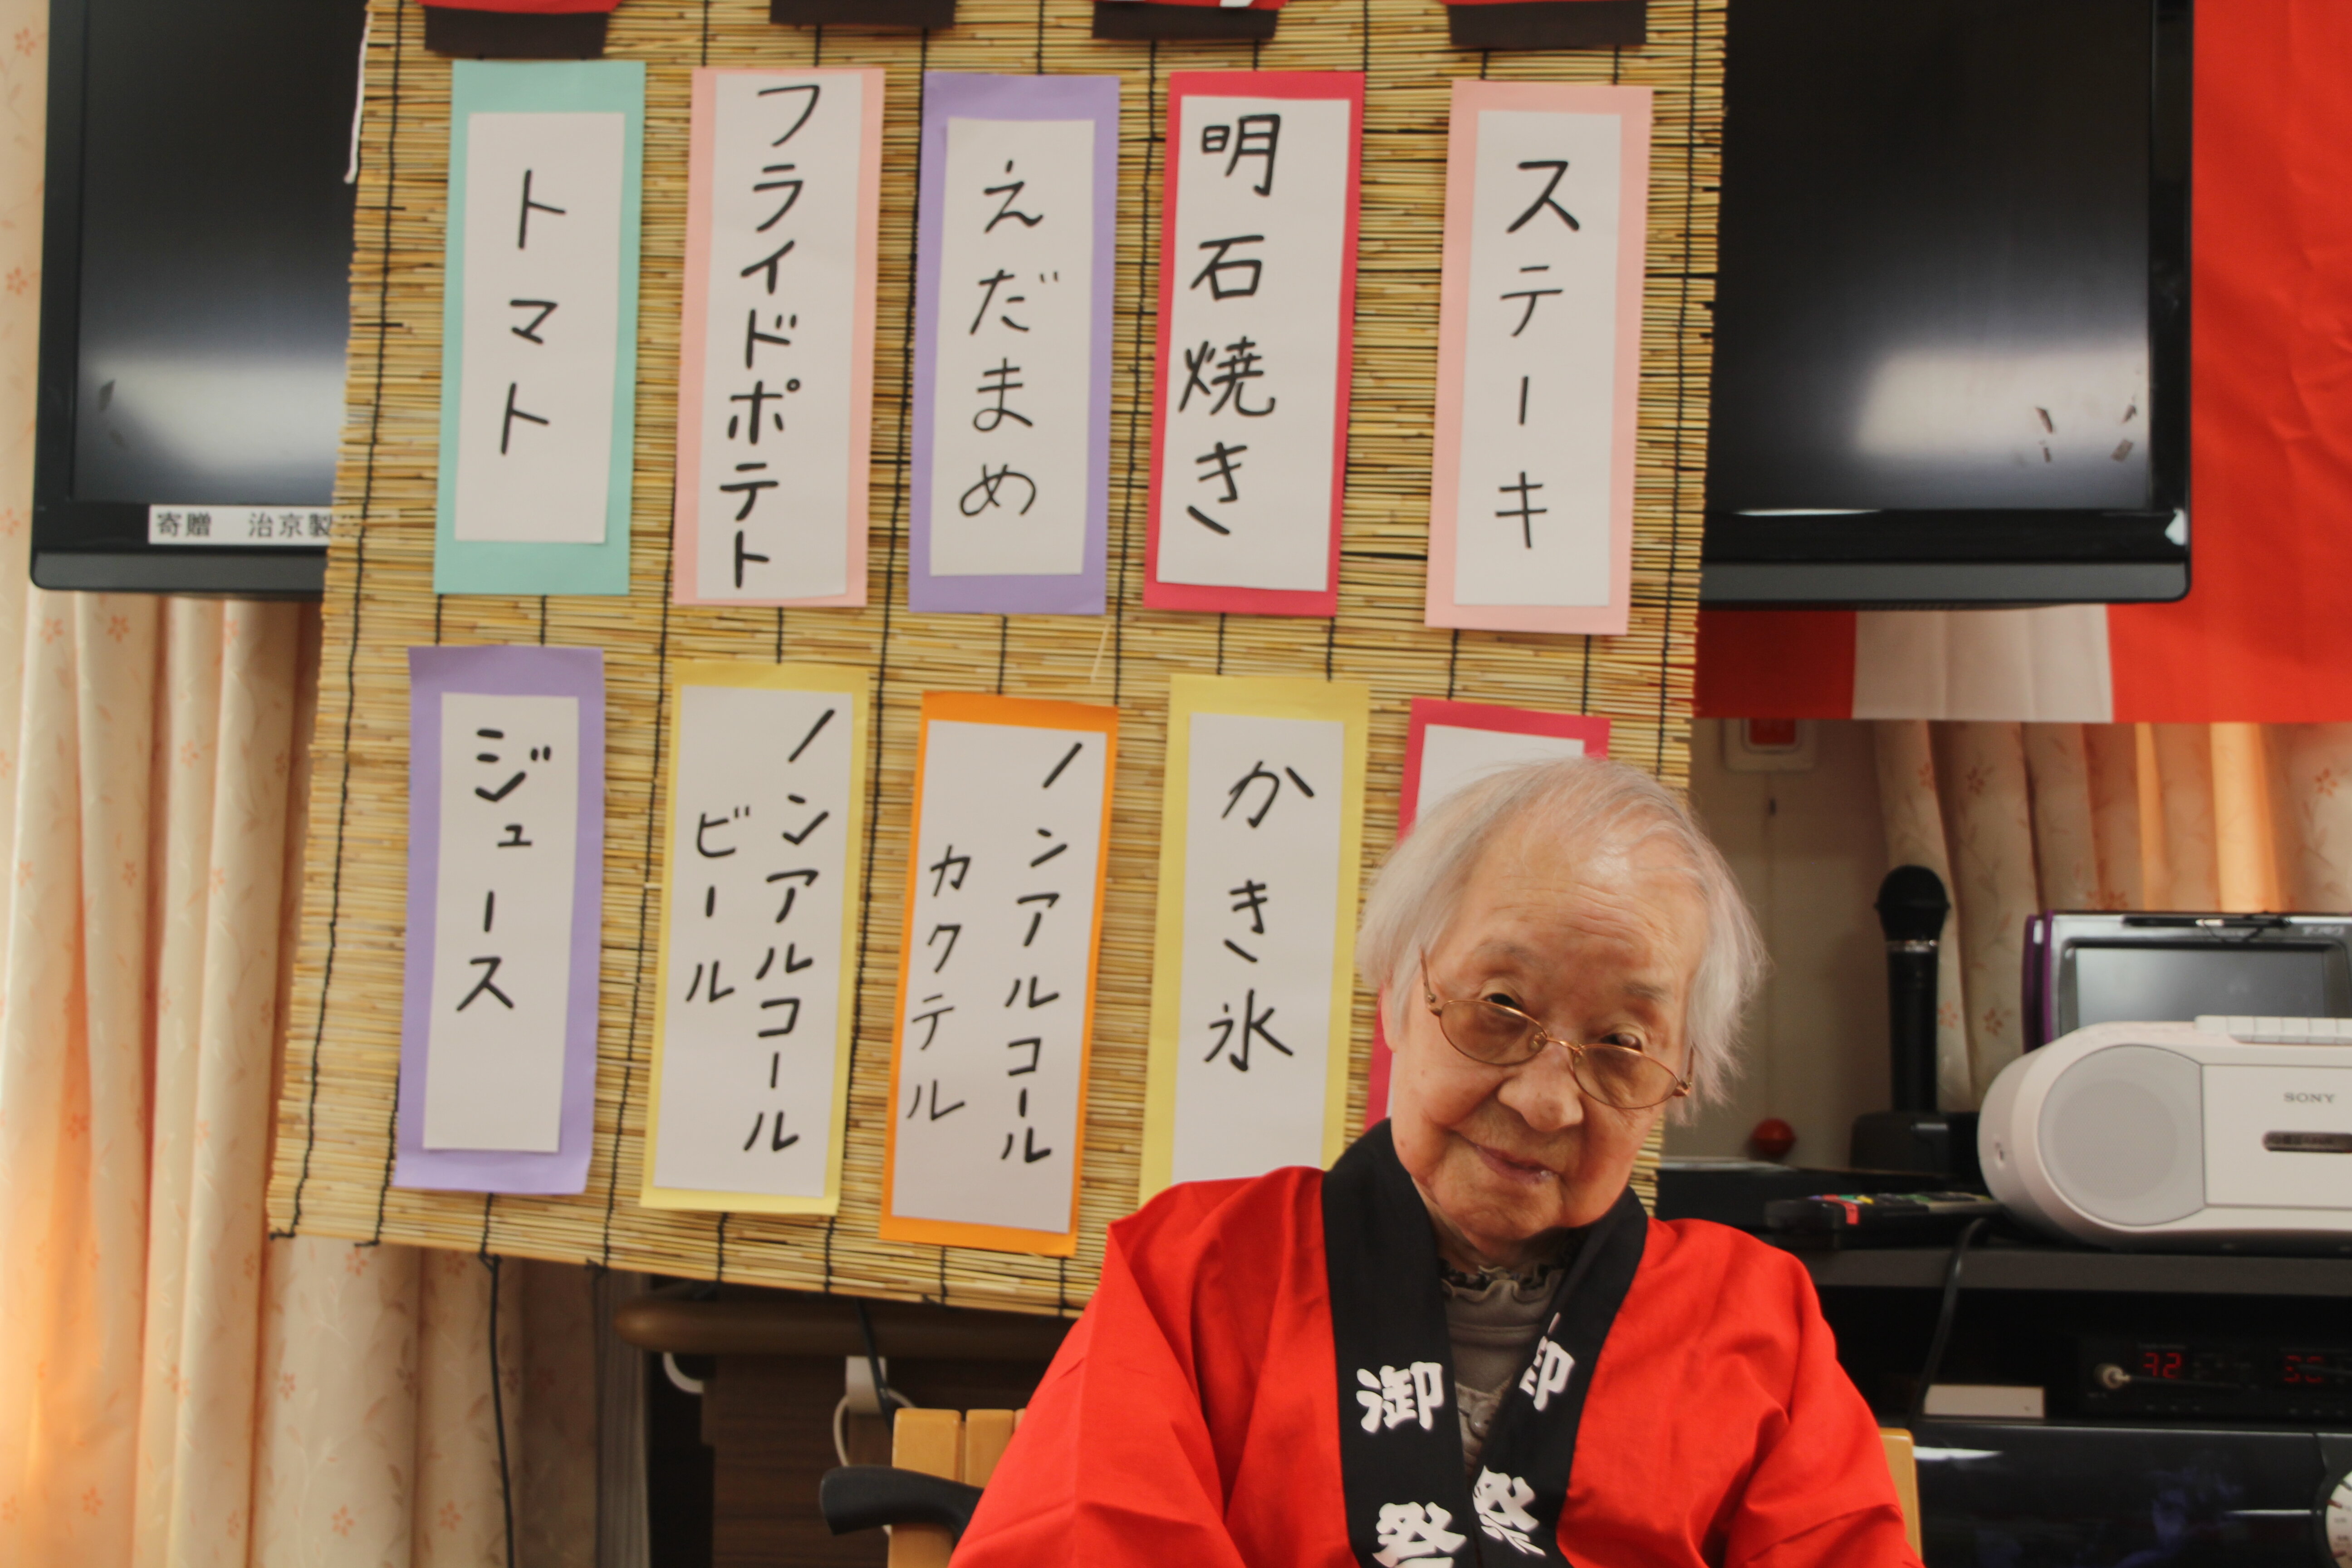 ステーキ
明石焼き
えだまめ
フライドポテト
トマト
かき氷
ノンアルコール
カクテル
ノンアルコール
ビール
ジュース
寄贈 治京製
御祭
祭
SONY
32